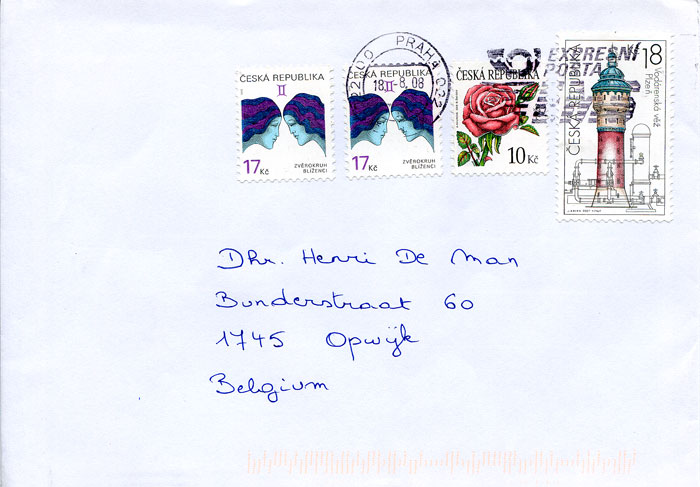 ČESKÁ REPUBLIKA
II
17 Kč
ZVĚROKRUH
BLÍŽENCI
ČESKÁ REPUBLIKA
II
17 Kč
ZVĚROKRUH
BLÍŽENCI
PRAHA 022
18.-8.08
ČESKÁ REPUBLIKA
10 Kč
EXPRESNÍ
POŠTA
ČESKÁ REPUBLIKA
18
Vodárenská věž
Plzeň
Dhr. Henri De Man
Bunderstraat 60
1745 Opwijk
Belgium